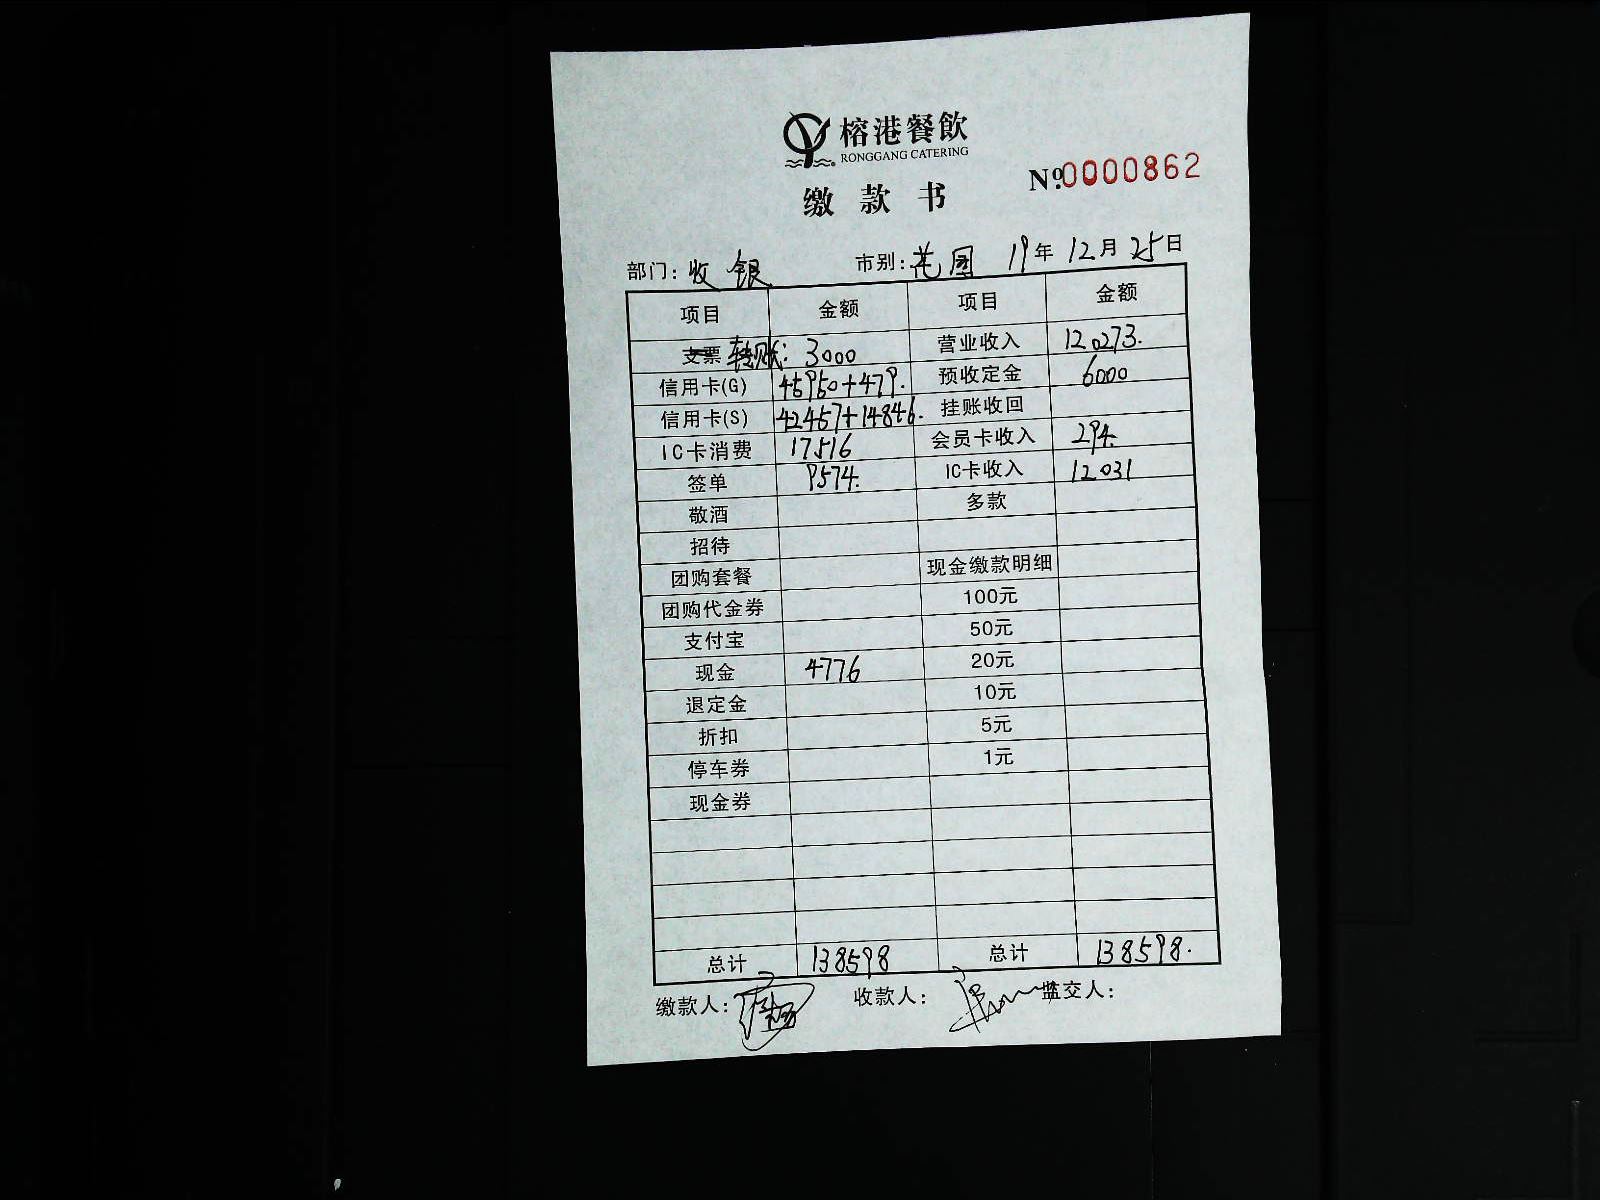 榕港餐飲
RONGGANG CATERING
缴款书 №0000862
部门: 收银 市别: 花园 19年12月25日
项目 金额 项目 金额
支票 转账: 3000 营业收入 120273.
信用卡(G) 45950+479. 预收定金 6000
信用卡(S) 42457+14846. 挂账收回
IC卡消费 17516 会员卡收入 294.
签单 9574. IC卡收入 12031
敬酒 多款
招待
团购套餐 现金缴款明细
团购代金券 100元
支付宝 50元
现金 4776 20元
退定金 10元
折扣 5元
停车券 1元
现金券
总计 138598 总计 138598.
缴款人: 收款人: 监交人: